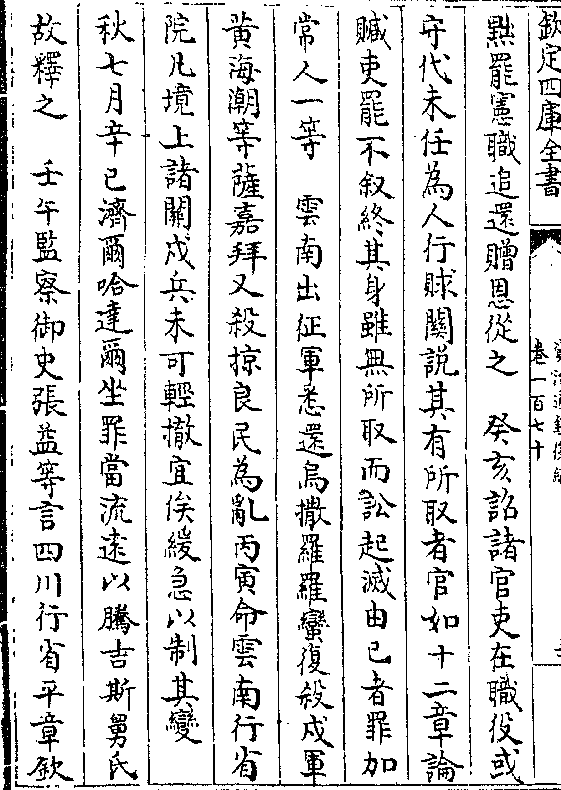 欽定四庫全書
卷一百七十
㸃罷憲職追還贈恩從之　癸亥詔諸官吏在職役或
守代未任為人行賕關説其有所取者官如十二章論
贓吏罷不叙終其身雖無所取而訟起滅由已者罪加
常人一等　雲南出征軍悉還烏撒羅羅蠻復殺戍軍
黄海潮等薩嘉拜又殺掠良民為亂丙寅命雲南行省
院凡境上諸關戍兵未可輕撤宜俟緩急以制其變
秋七月辛已濟爾哈達爾坐罪當流逺以騰吉斯舅氏
故釋之　壬午監察御史張益等言四川行省平章欽